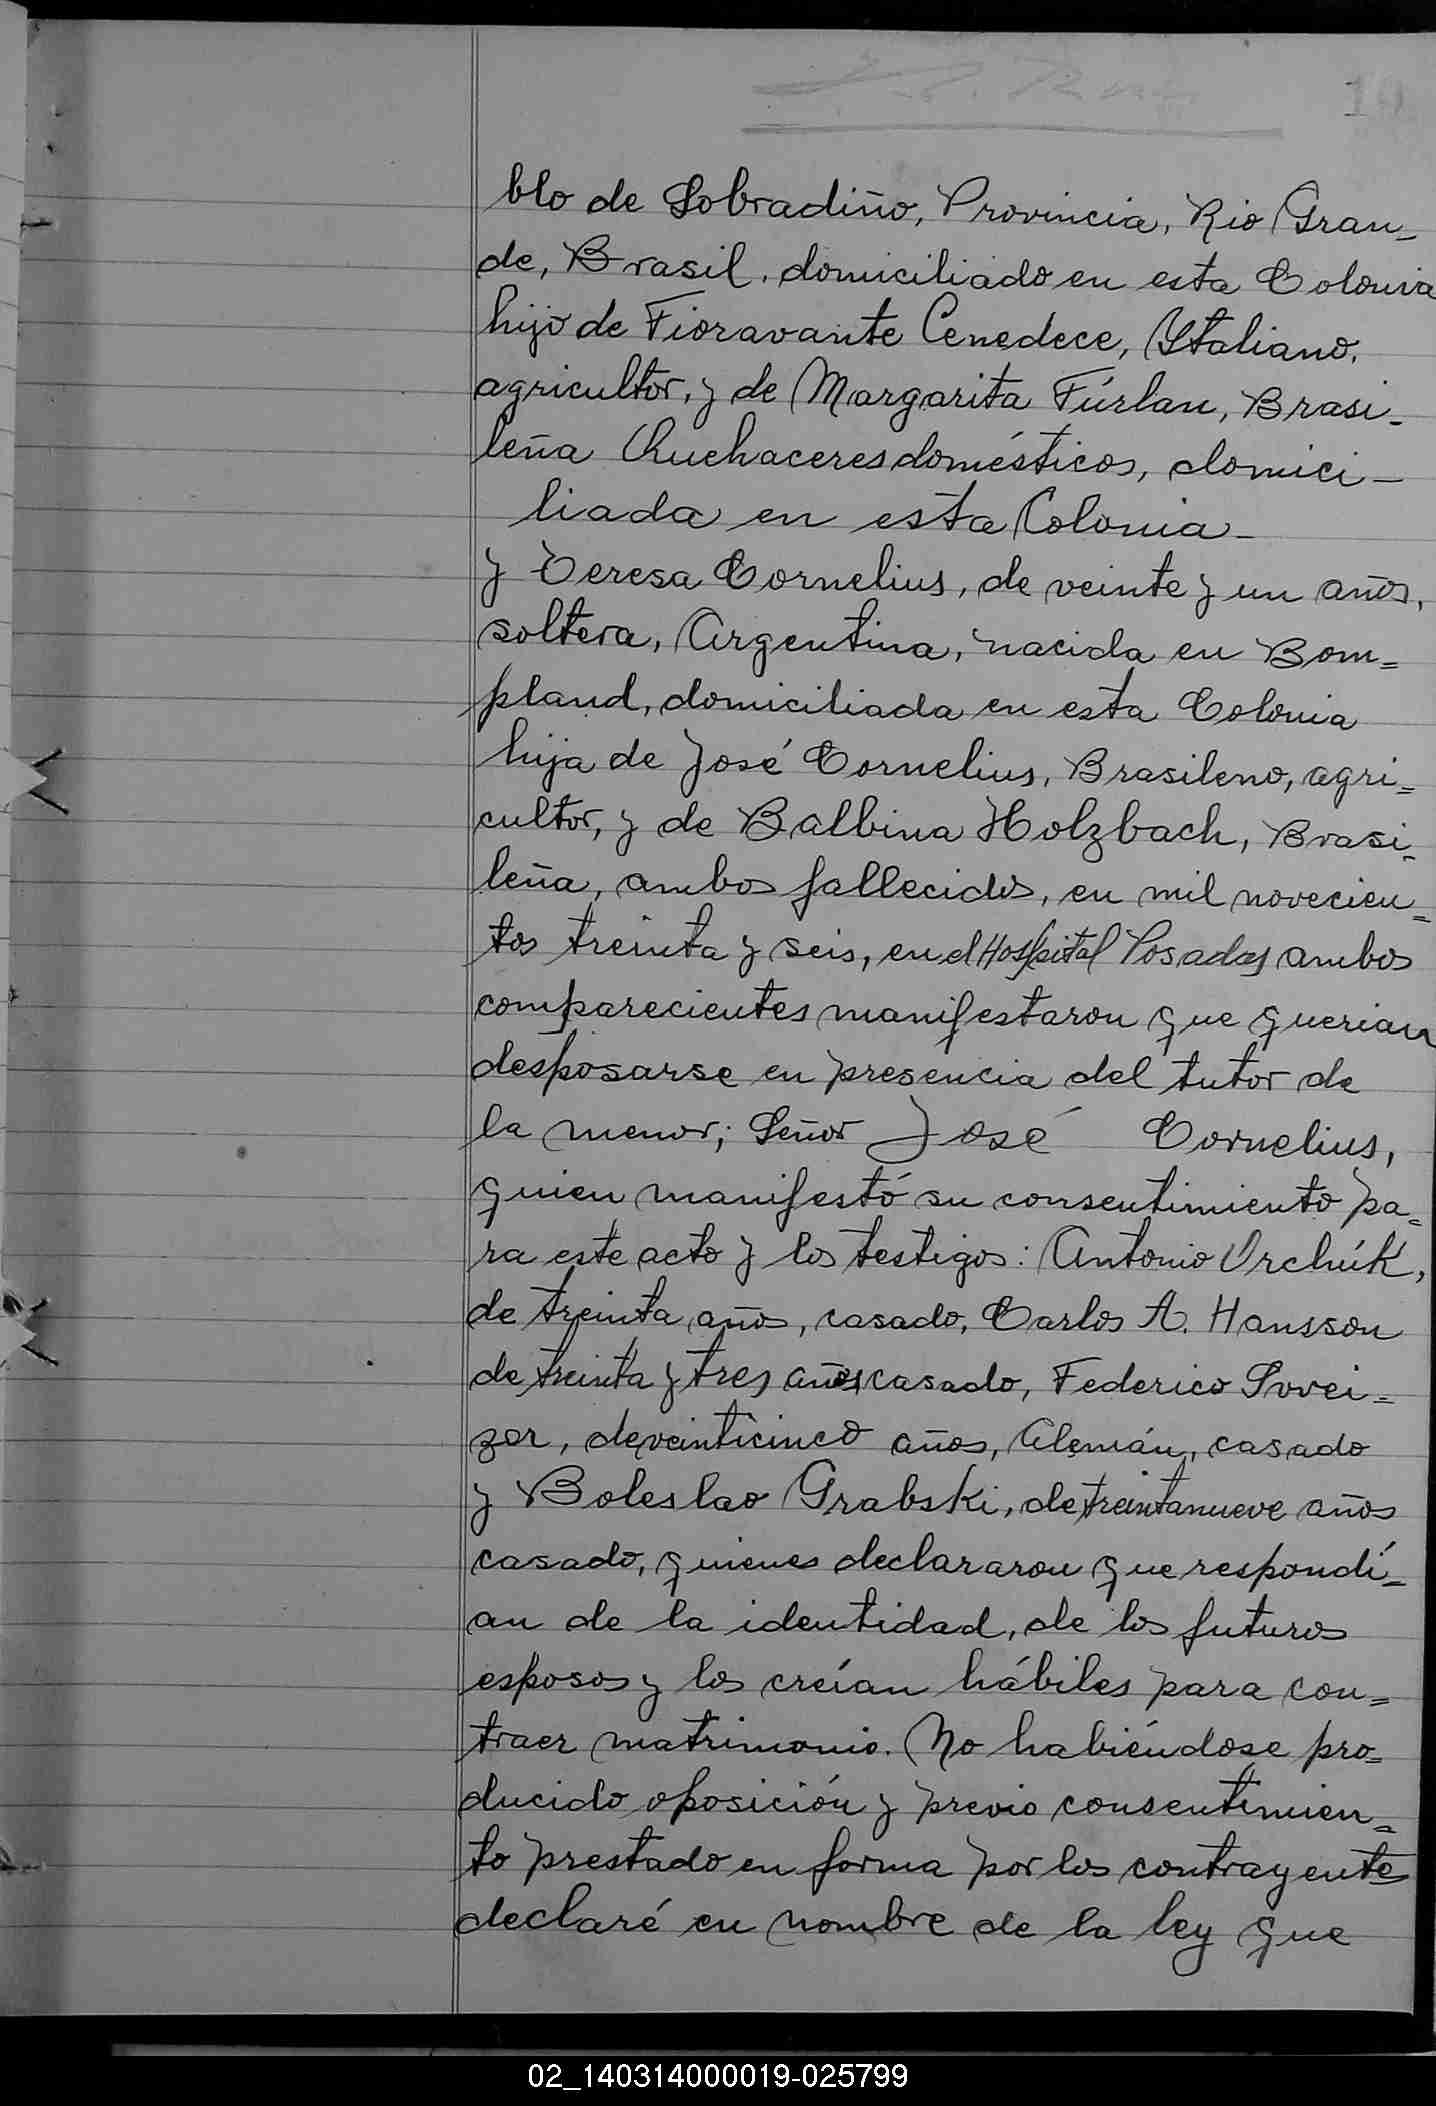 10
blo de Sobradiño, Provincia, Rio Gran-
de, Brasil. domiciliado en esta Colonia
hijo de Fioravante Cenedece, Ytaliano,
agricultor, y de Margarita Fúrlan, Brasi-
leña Quehaceres domésticos, domici-
liada en esta Colonia-
y Teresa Cornelius, de veinte y un años,
soltera, Argentina, nacida en Bom=
pland, domiciliada en esta Colonia
hija de José Cornelius, Brasileno, agri=
cultor, y de Balbina Holzbach, Brasi-
leña, ambos fallecidos, en mil novecien=
tos treinta y seis, en el Hospital Posadas ambos
comparecientes manifestaron que querian
desposarse en presencia del tutor de
la menor; Señor José Cornelius,
quien manifestó su consentimiento pa=
ra este acto y los testigos: Antonio Orchúk,
de treinta años, casado, Carlos A. Hansson
de treinta y tres años, casado, Federico Sovei=
zer, de veinticinco años, Alemán, casado
y Boleslao Grabski, de treintanueve años
casado, quienes declararon que respondí-
an de la identidad, de los futuros
esposos y los creían hábiles para con=
traer matrimonio. No habiéndose pro=
ducido oposición y previo consentimien=
to prestado en forma por los contrayentes
declaré en nombre de la ley que
02_140314000019-025799